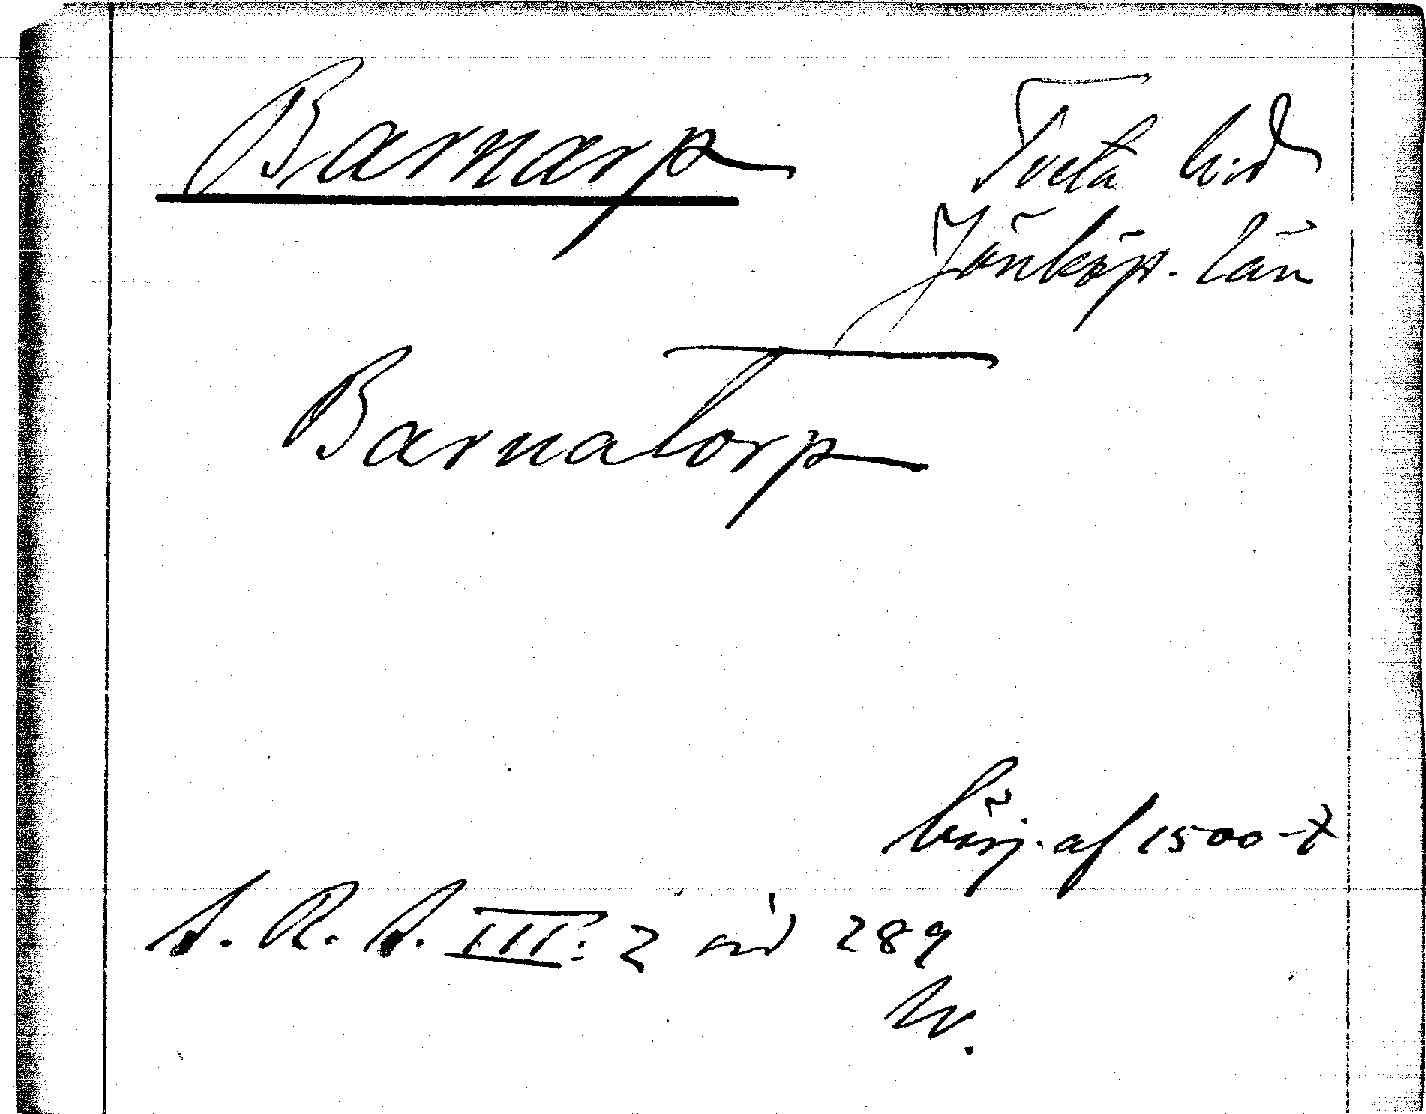 Barnarp
Tveta hd
Jönköp. län
Barnatorp
börj. af 1500-t
S. R. S. III: 2 sid 289
W.